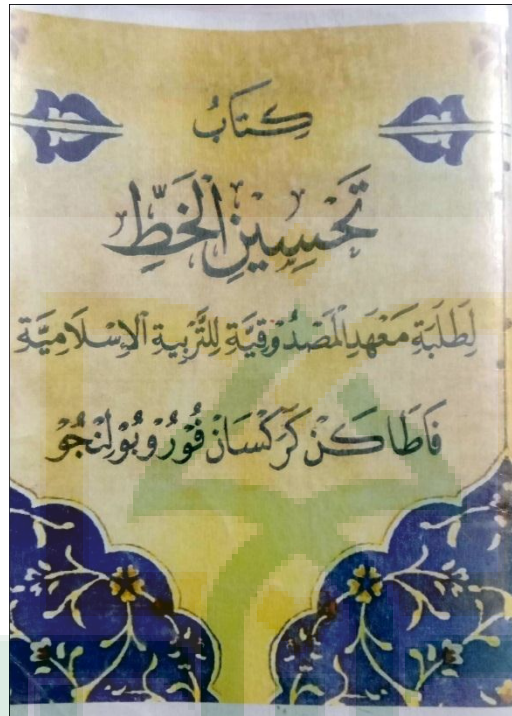 كِتَابُ
تَحْسِيْنِ الْخَطِّ
لِطَلَبَةِ مَعْهَدِ الْمَصْدُوْقِيَّةِ لِلتَّرْبِيَةِ الْإِسْلَامِيَّةِ
فَاطَاكَنْ كَرَكْسَانْ فُوْرُوْبُوْلِنْجُوْ